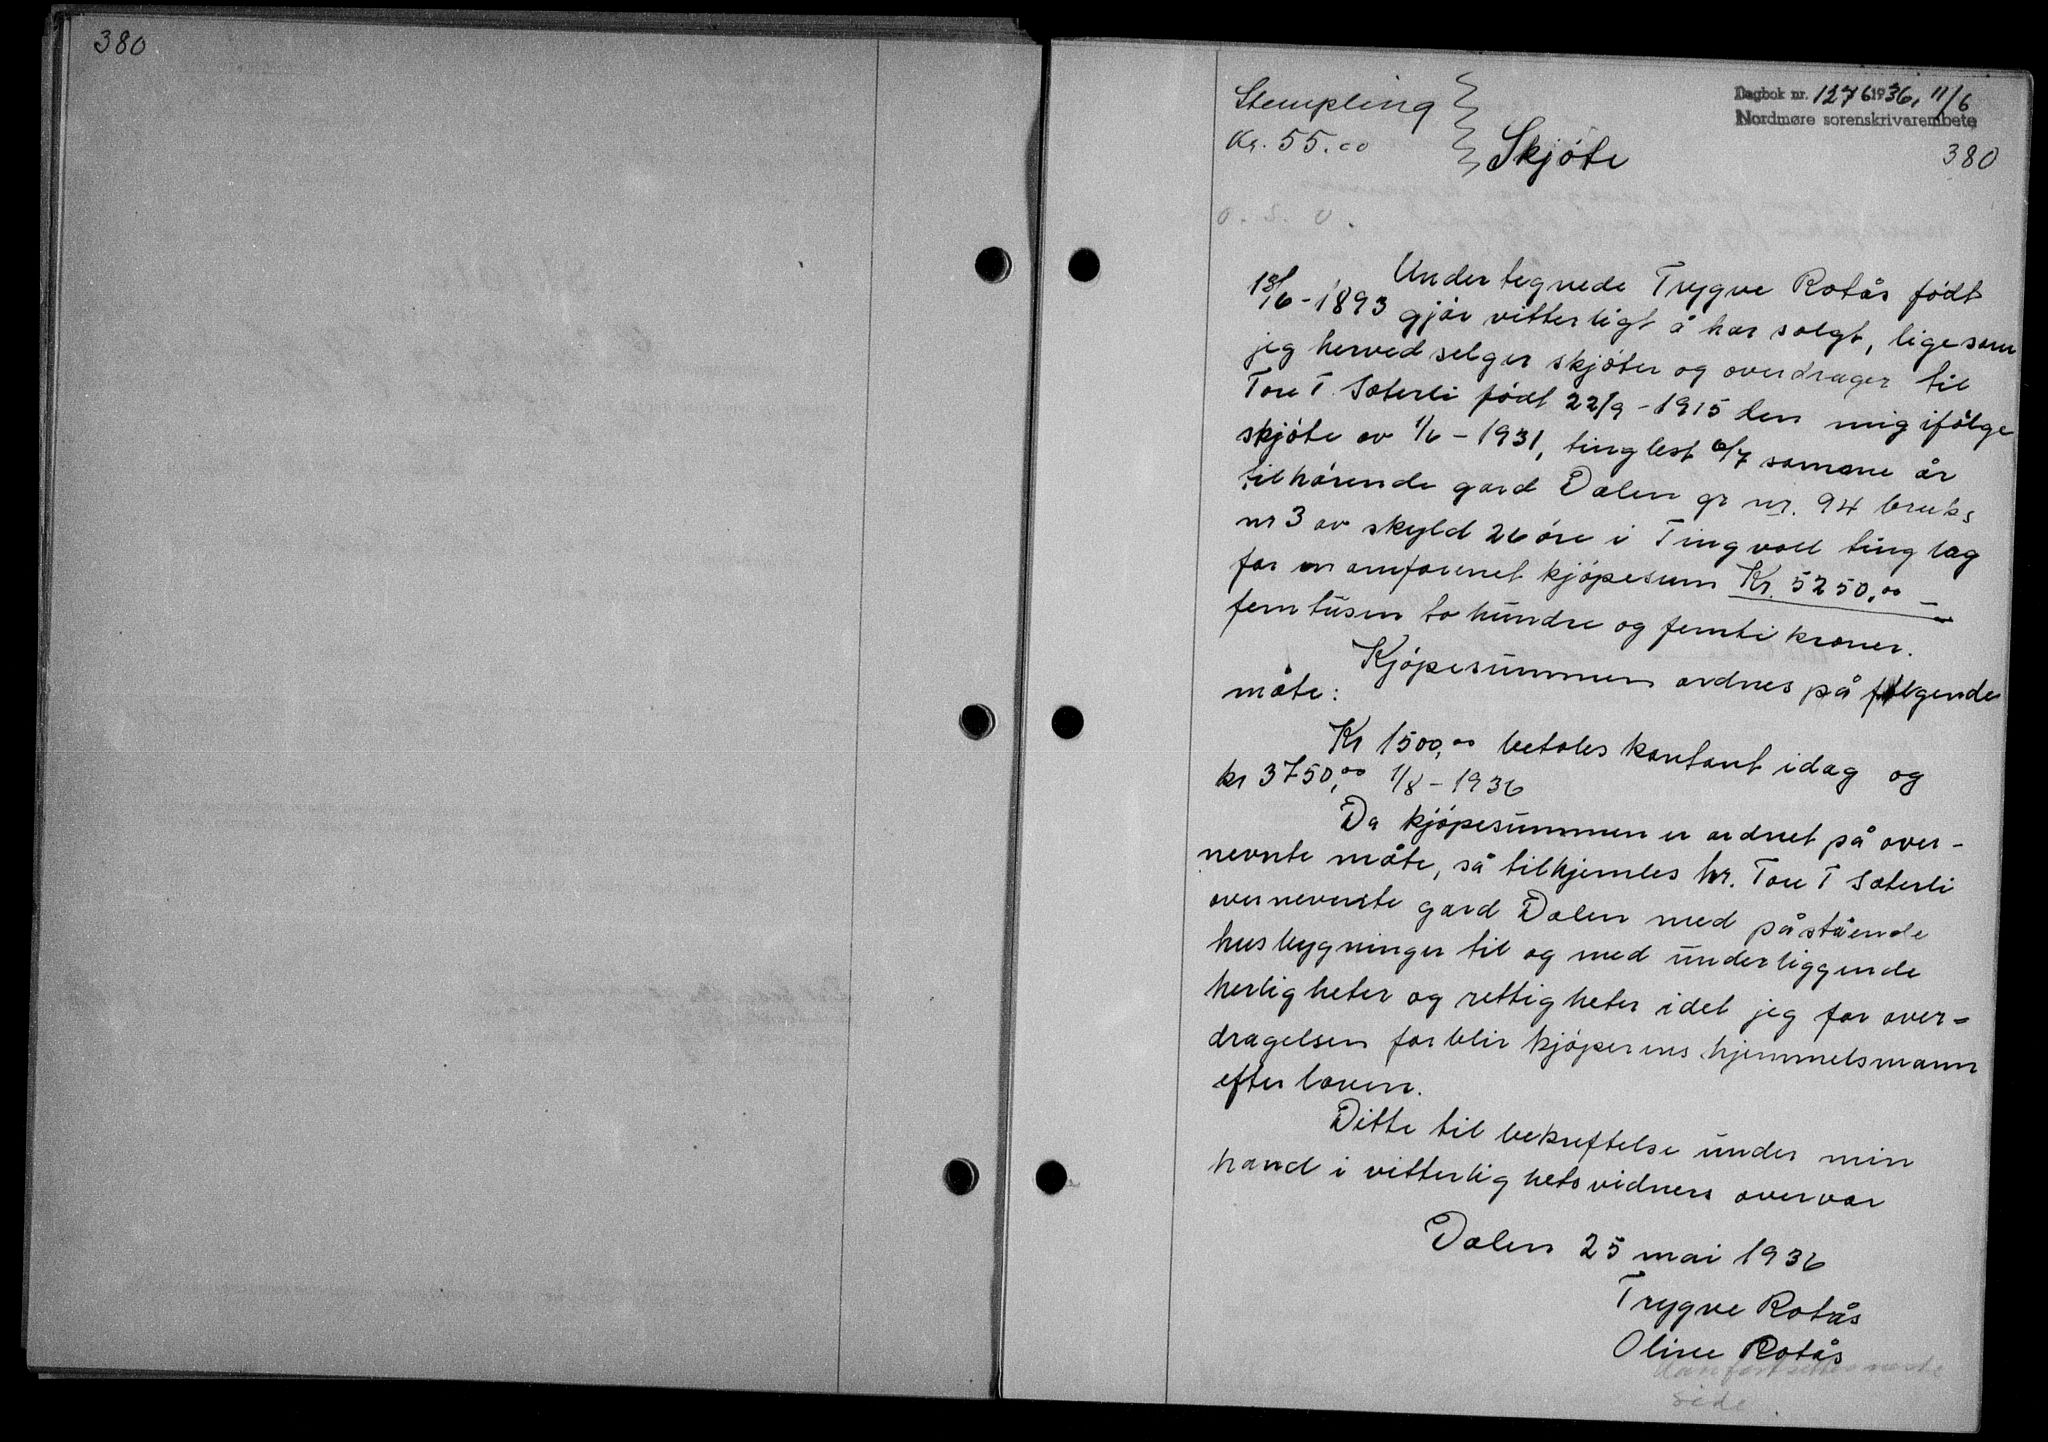 380
Stempling
Kr. 55.00
Skjöte
Dagbok nr. 1276 1936, 11/6
Nordmøre sorenskrivarembete
380
o. s. v.
Undertegnede Trygve Rotås født
13/6-1893 gjör vitterligt å har solgt, ligesom
jeg herved selger skjöter og overdrager til
Tore T. Sæterli födt 22/9-1915 den mig ifölge
skjöte av 1/6-1931, tinglest 6/7 samme år
tilhörende gard Dalen gr nr. 94 bruks
nr 3 av skyld 26 öre i Tingvoll tinglag
for en omforenet kjöpesum Kr. 5250,00 —
femtusen to hundre og femti kroner.
Kjöpesummen ordnes på fölgende
måte:
Kr 1500,00 betales kontant idag og
kr 3750,00 1/8-1936
Da kjöpesummen er ordnet på over-
nevnte måte, så tilhjemles hr. Tore T Sæterli
overnevnte gard Dalen med påstående
husbygninger til og med underliggende
herligheter og rettigheter idet jeg for over-
dragelsen forblir kjöperens hjemmelsmann
efter loven.
Dette til bekreftelse under min
hand i vitterlighetsvidners overvær
Dalen 25 mai 1936
Trygve Rotås
Oline Rotås
fortsettes neste
side.